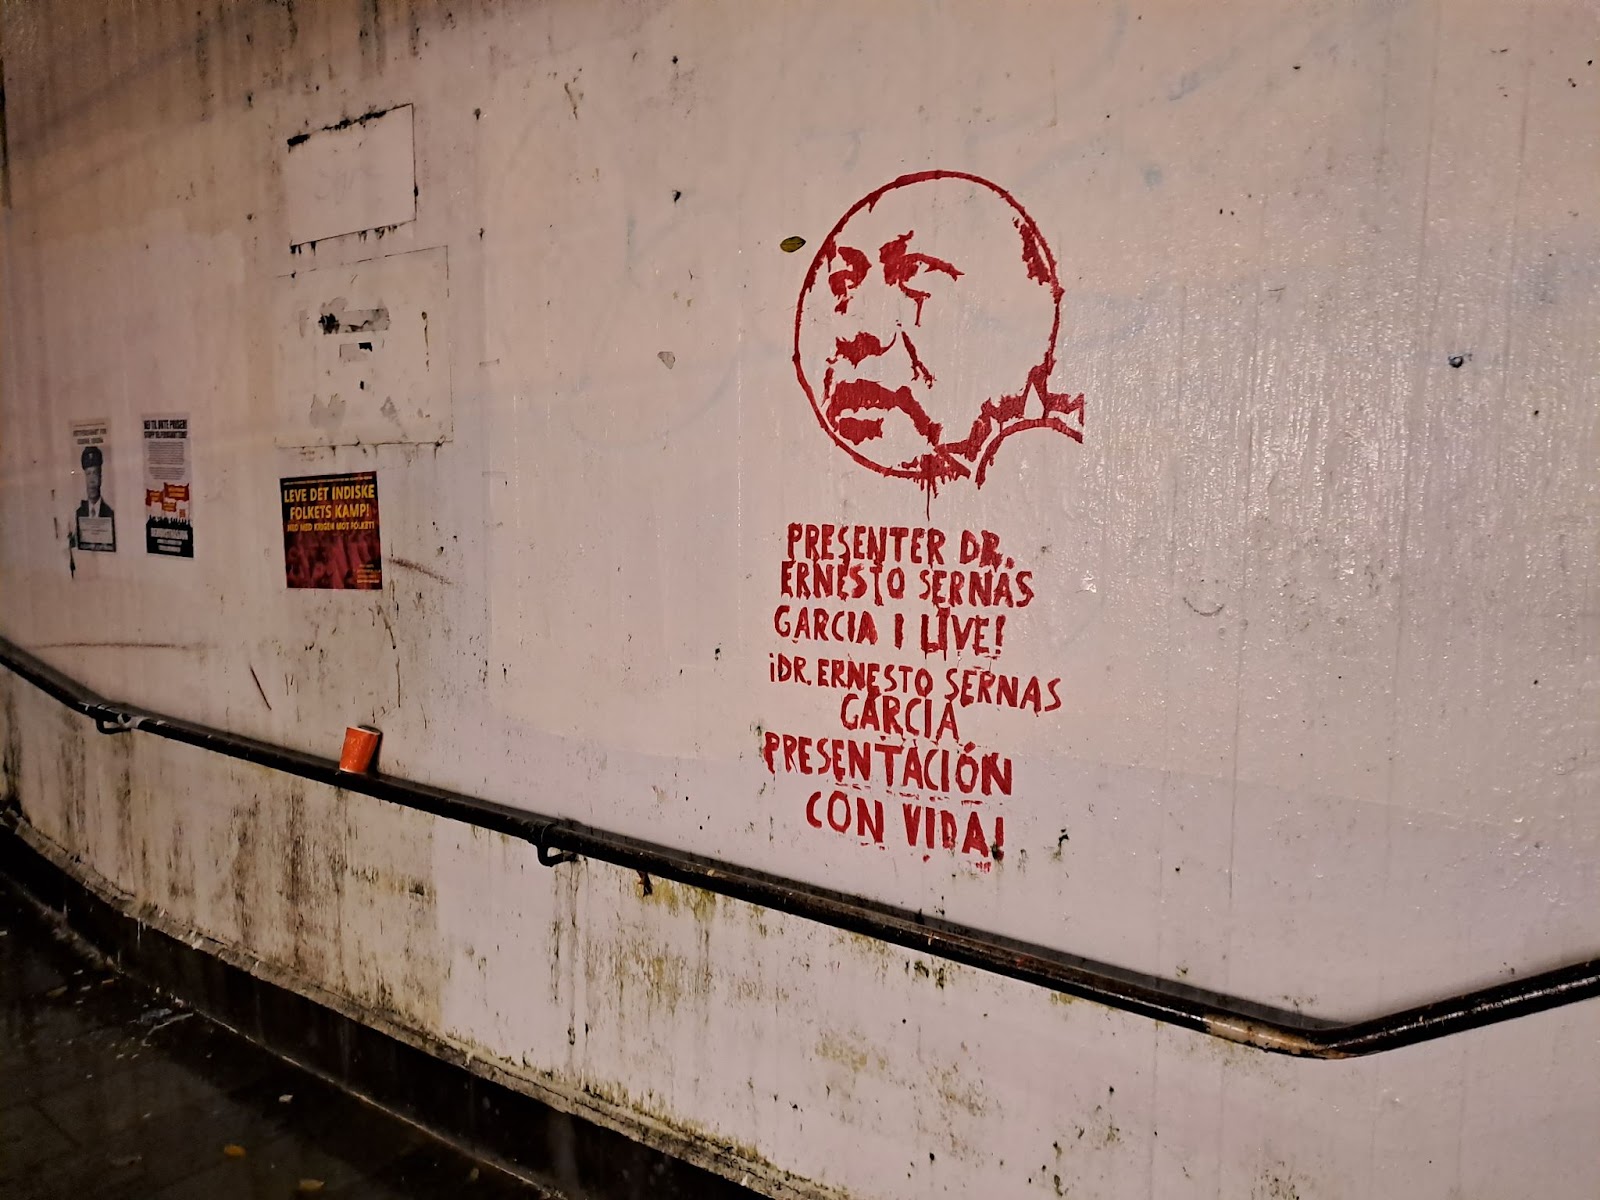 NEI TIL ØKTE PRISER!
LEVE DET INDISKE
FOLKETS KAMP!
NED MED KRIGEN MOT FOLKET!
PRESENTER DR.
ERNESTO SERNAS
GARCIA I LIVE!
¡DR. ERNESTO SERNAS
GARCIA
PRESENTACIÓN
CON VIDA!